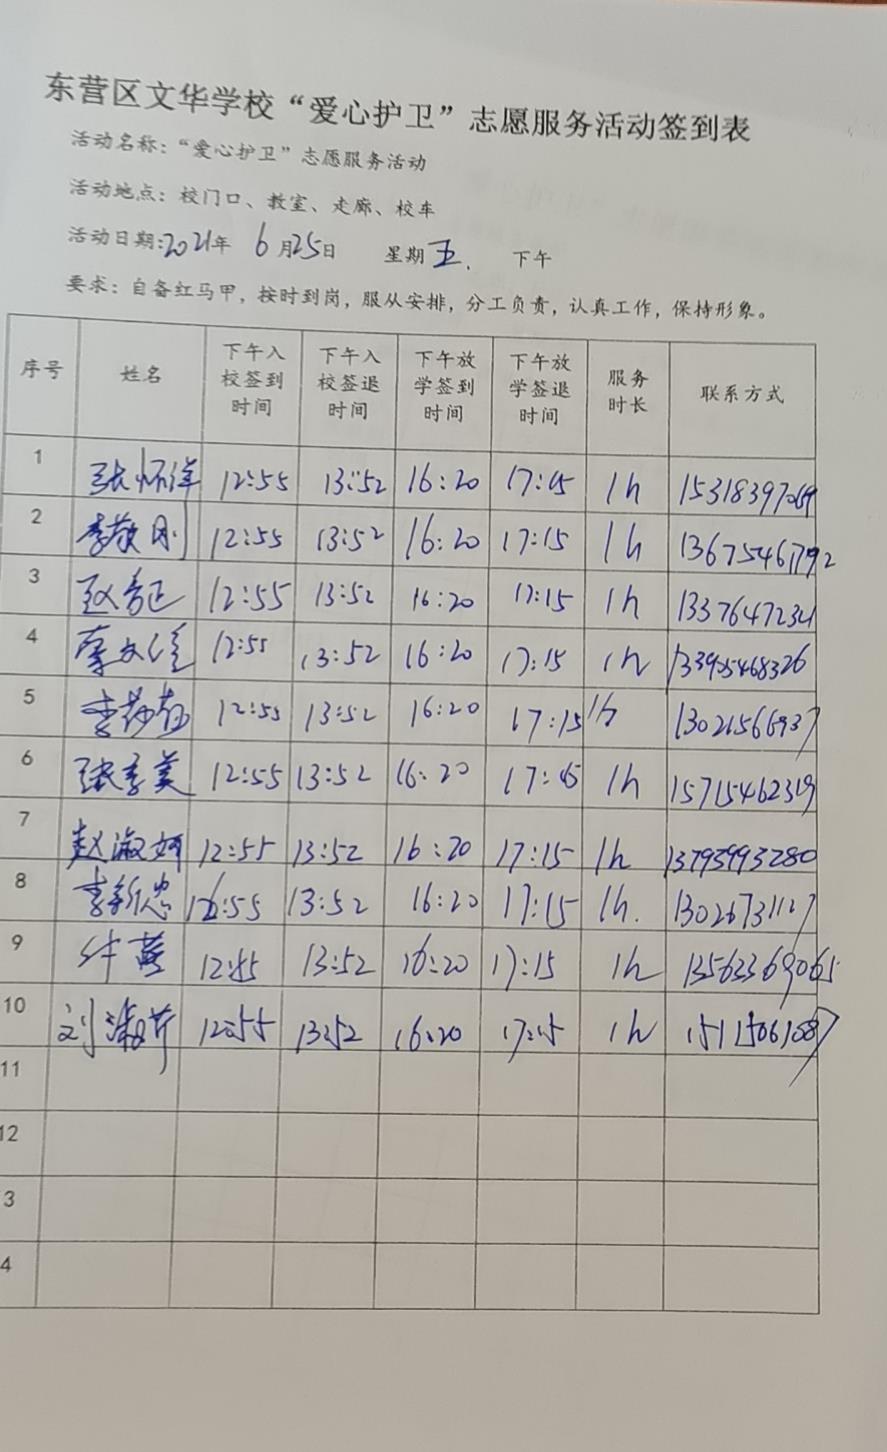 东营区文华学校“爱心护卫”志愿服务活动签到表
活动名称：“爱心护卫”志愿服务活动
活动地点：校门口、教室、走廊、校车
活动日期:2021年 6月25日 星期五. 下午
要求：自备红马甲，按时到岗，服从安排，分工负责，认真工作，保持形象。
序号 姓名 下午入校签到时间 下午入校签退时间 下午放学签到时间 下午放学签退时间 服务时长 联系方式
1 张怀洋 12:55 13:52 16:20 17:15 1h
2 李敬刚 12:55 13:52 16:20 17:15 1h 13675461792
3 12:55 13:52 16:20 17:15 1h
4 12:55 13:52 16:20 17:15 1h
5 12:55 13:52 16:20 17:15 1h
6 12:55 13:52 16:20 17:15 1h 15715462319
7 赵淑娟 12:55 13:52 16:20 17:15 1h 13793993280
8 李新忠 12:55 13:52 16:20 17:15 1h. 13026731127
9 12:45 13:52 16:20 17:15 1h 13563369065
10 刘淑芹 12:55 13:52 16:20 17:15 1h
11
12
3
4